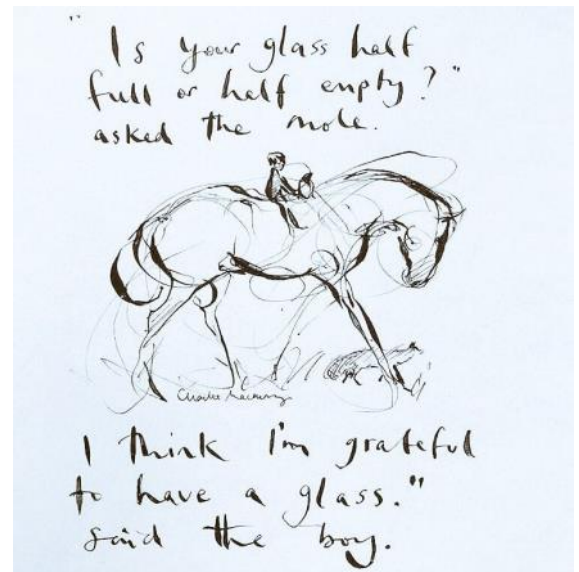 "Is your glass half
full or half empty?"
asked the mole.
Charlie Mackesy
I think I'm grateful
to have a glass."
said the boy.